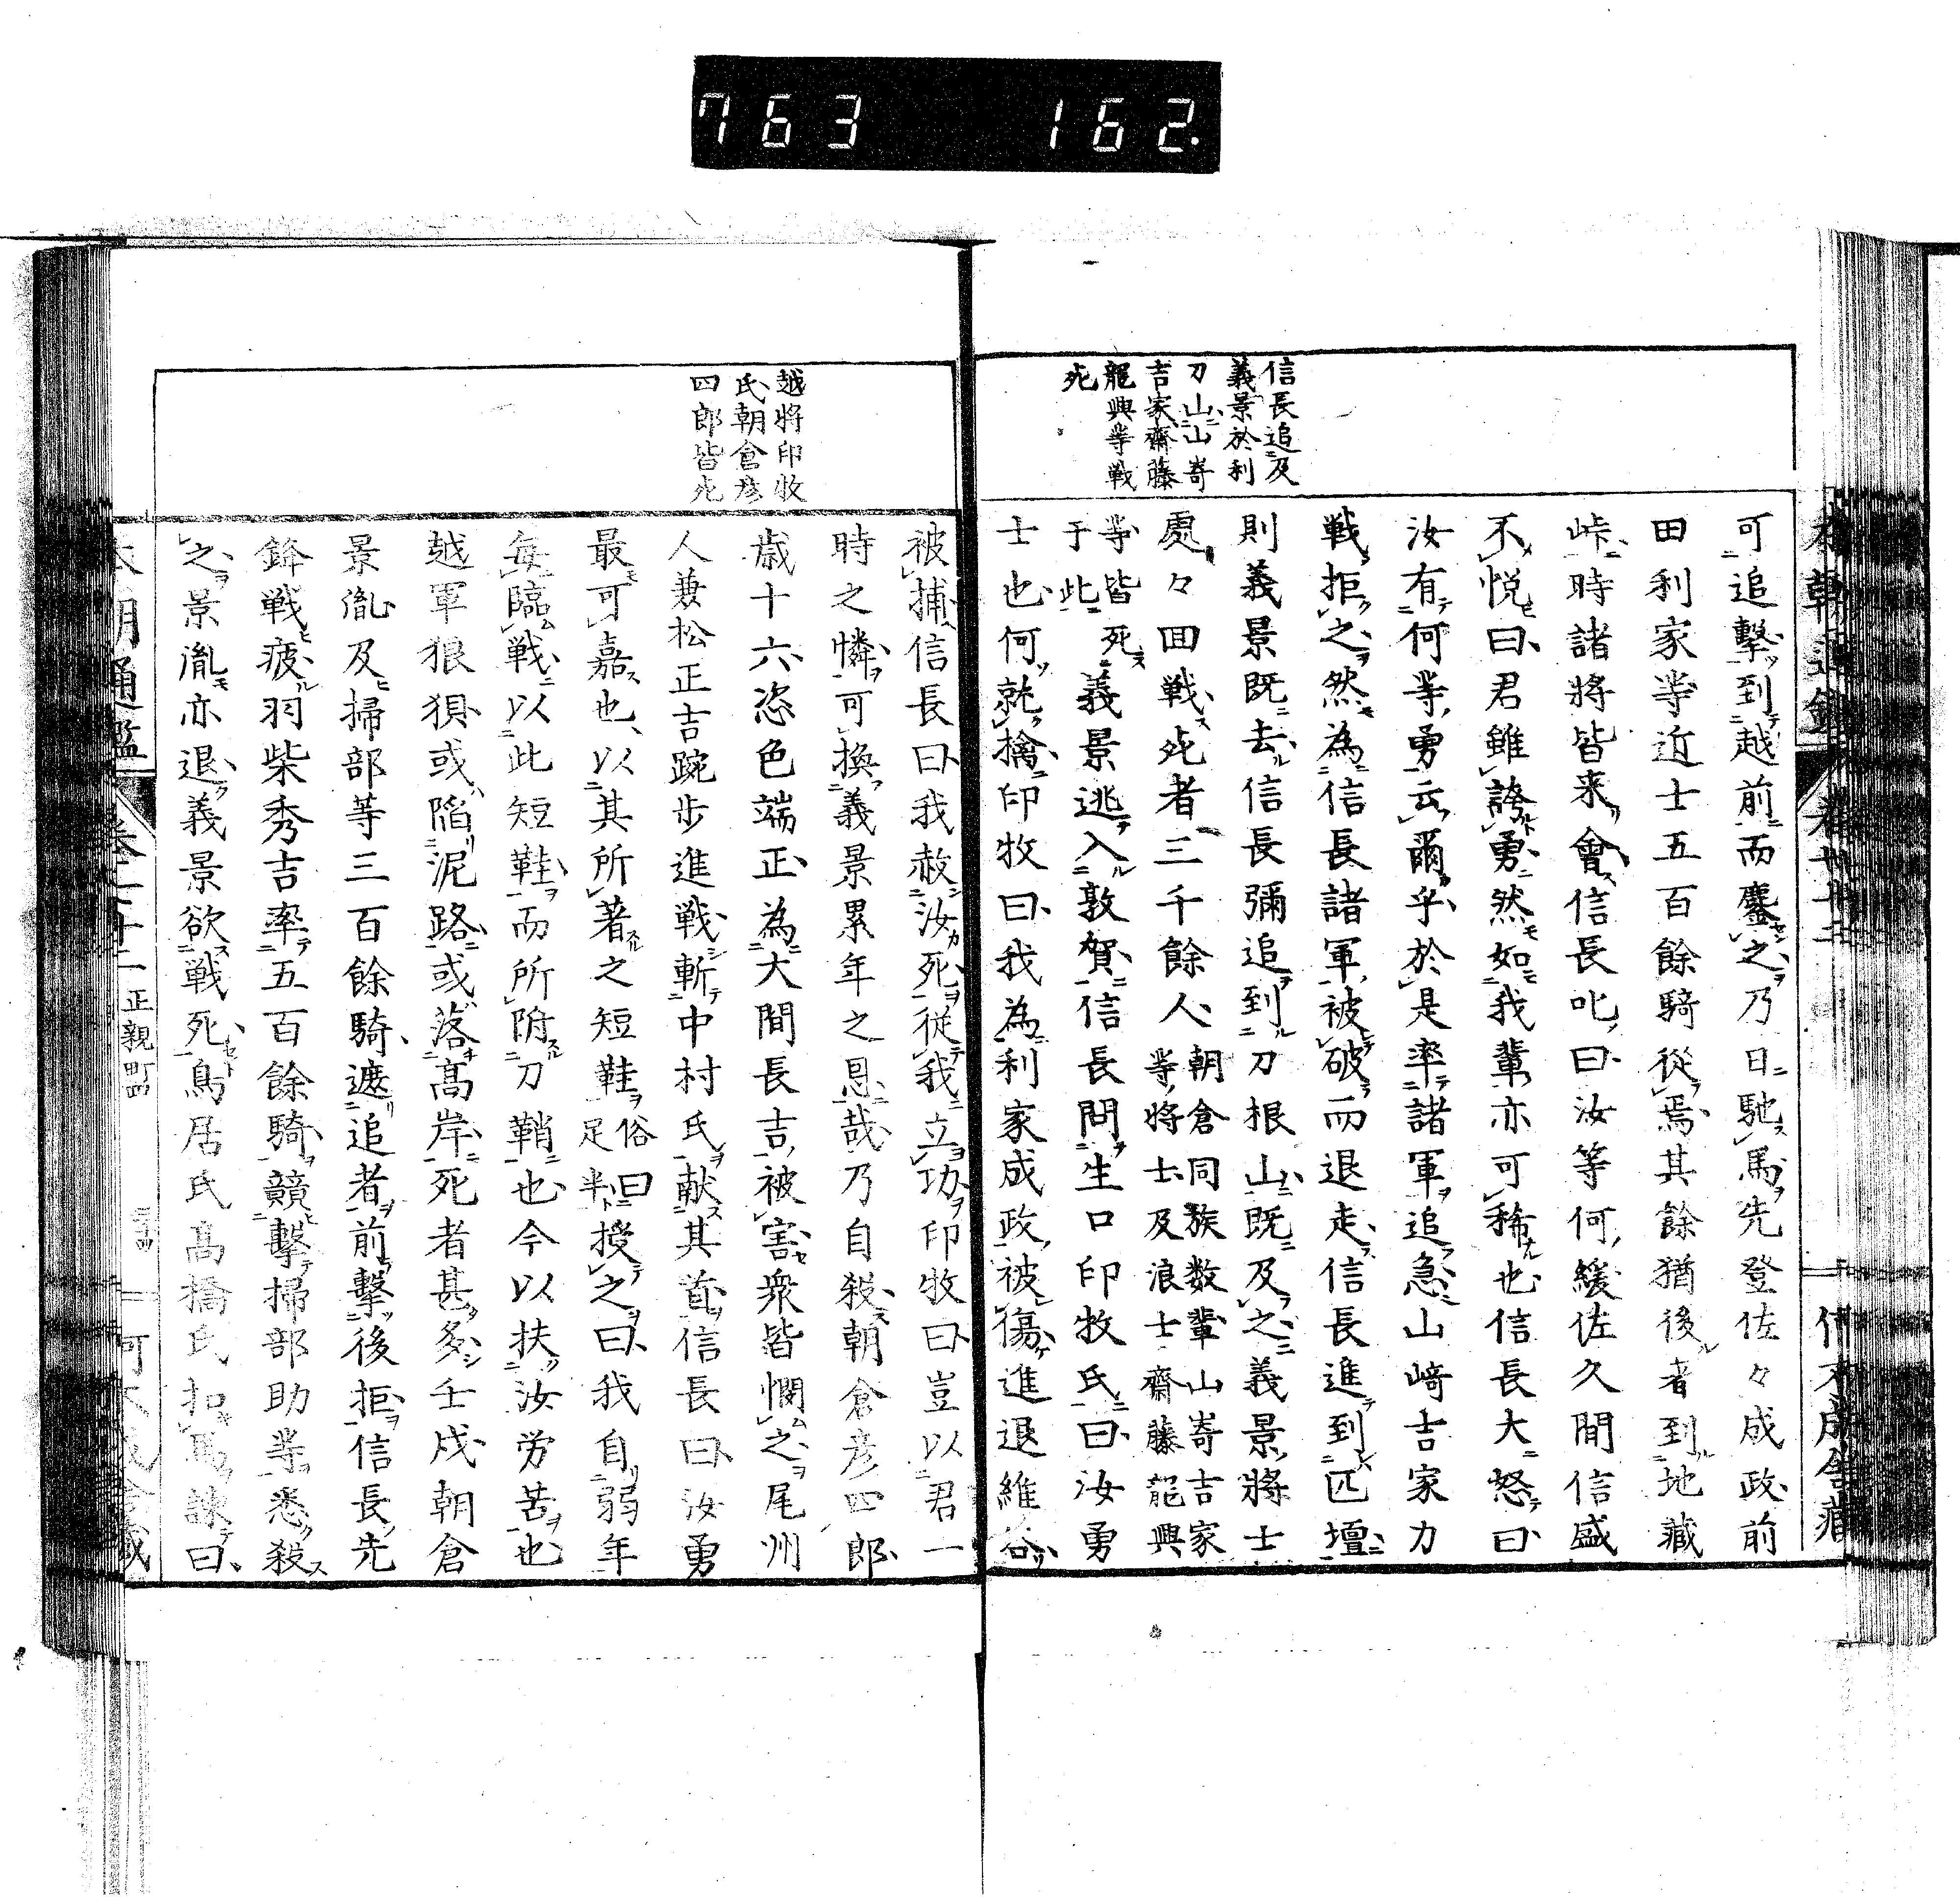 763 162.
信長追及
義景於利
刀山山嵜
吉家齋藤
龍興等戦
死
可追擊到越前而鏖之乃日馳馬先登佐々成政前
田利家等近士五百餘騎從焉其餘猶後者到地藏
峠時諸將皆来會信長叱曰汝等何緩佐久間信盛
不悦曰君雖誇勇然如我輩亦可稀也信長大怒曰
汝有何等勇云爾乎於是率諸軍追急山﨑吉家力
戦拒之然為信長諸軍被破而退走信長進到匹壇
則義景既去信長彌追到刀根山既及之義景將士
處々囬戦死者三千餘人朝倉同族数輩山嵜吉家
等將士及浪士齋藤龍興
等皆死
于此
義景逃入敦賀信長問生口印牧氏曰汝勇
士也何就擒印牧曰我為利家成政被傷進退維谷
越將印牧
氏朝倉彦
四郎皆死
被捕信長曰我赦汝死従我立功印牧曰豈以君一
時之憐可換義景累年之恩哉乃自殺朝倉彦四郎
歳十六恣色端正為大間長吉被害衆皆憫之尾州
人兼松正吉跣歩進戦斬中村氏献其首信長曰汝勇
最可嘉也以其所著之短鞋俗曰
足半
授之曰我自弱年
毎臨戦以此短鞋而所附刀鞘也今以扶汝労苦也
越軍狼狽或陥泥路或落髙岸死者甚多壬戌朝倉
景胤及掃部等三百餘騎遮追者前擊後拒信長先
鋒戦疲羽柴秀吉率五百餘騎競擊掃部助等悉殺
之景胤亦退義景欲戦死鳥居氏髙橋氏扣馬諌曰
本朝通鑑 正親町四